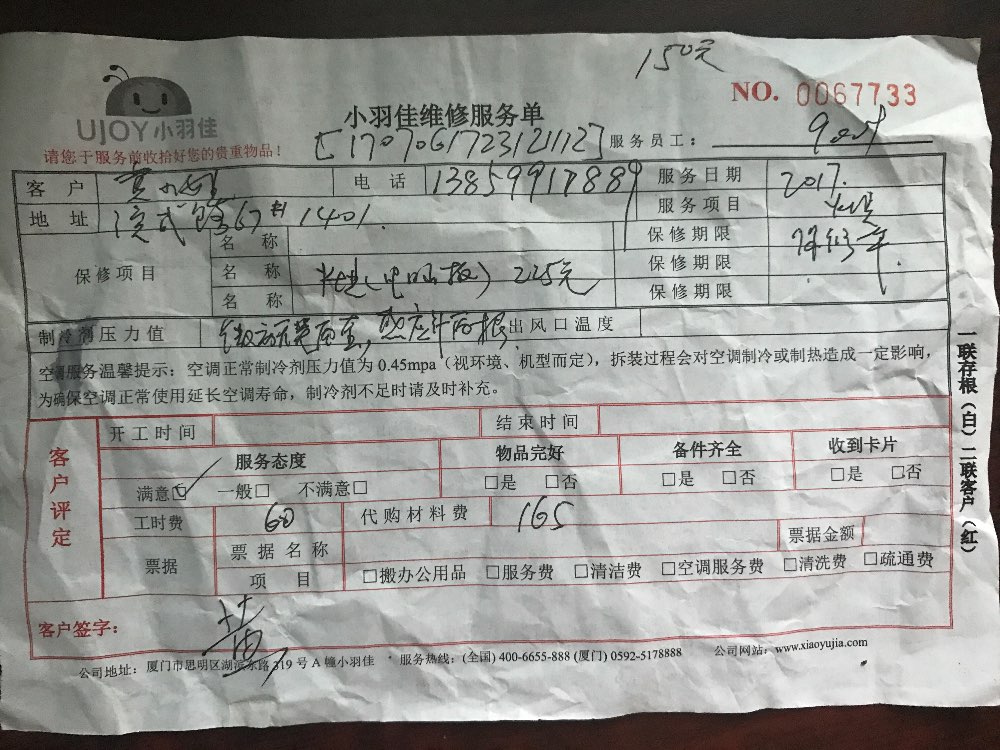 150元
NO. 0067733
UJOY小羽佳
小羽佳维修服务单
请您于服务前收拾好您的贵重物品！
[170706172312112] 服务员工：
客 户 黄 电 话 13859917889 服务日期 2017.
地 址 67 1401. 服务项目
保修项目
名 称 保修期限
名 称 225元 保修期限
名 称 保修期限
制冷剂压力值 出风口温度
空调服务温馨提示：空调正常制冷剂压力值为 0.45mpa（视环境、机型而定），拆装过程会对空调制冷或制热造成一定影响，
为确保空调正常使用延长空调寿命，制冷剂不足时请及时补充。
客户评定
开工时间 结束时间
服务态度 物品完好 备件齐全 收到卡片
满意☑ 一般□ 不满意□ □是 □否 □是 □否 □是 □否
工时费 60 代购材料费 165
票据 票据名称 票据金额
项 目 □搬办公用品 □服务费 □清洁费 □空调服务费 □清洗费 □疏通费
客户签字：
公司地址：厦门市思明区湖滨东路 319 号 A 幢小羽佳 服务热线：(全国) 400-6655-888 (厦门) 0592-5178888 公司网站：www.xiaoyujia.com
一联存根（白）二联客户（红）